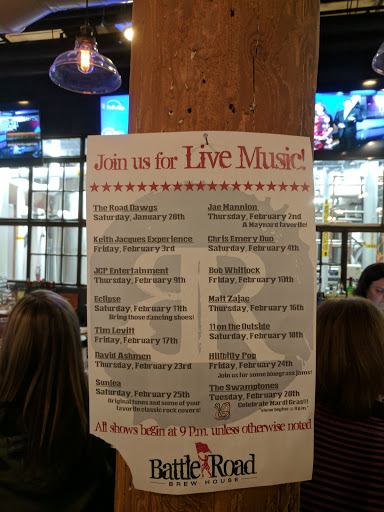 Join us for Live Music!
The Road Dawgs
Saturday, January 28th
Keith Jacques Experience
Friday, February 3rd
JCP Entertainment
Thursday, February 9th
Eclipse
Saturday, February 11th
Bring those dancing shoes!
Tim Levitt
Friday, February 17th
David Ashmen
Thursday, February 23rd
Sunlea
Saturday, February 25th
Original tunes and some of your
favorite classic rock covers!
Jae Mannion
Thursday, February 2nd
A Maynard favorite!
Chris Emery Duo
Saturday, February 4th
Bob Whitlock
Friday, February 10th
Matt Zajac
Thursday, February 16th
11 on the Outside
Saturday, February 18th
Hillbilly Pop
Friday, February 24th
Join us for some bluegrass jams!
The Swamptones
Tuesday, February 28th
Celebrate Mardi Gras!!!
All shows begin at 9 P.m. unless otherwise noted
Battle Road
BREW HOUSE